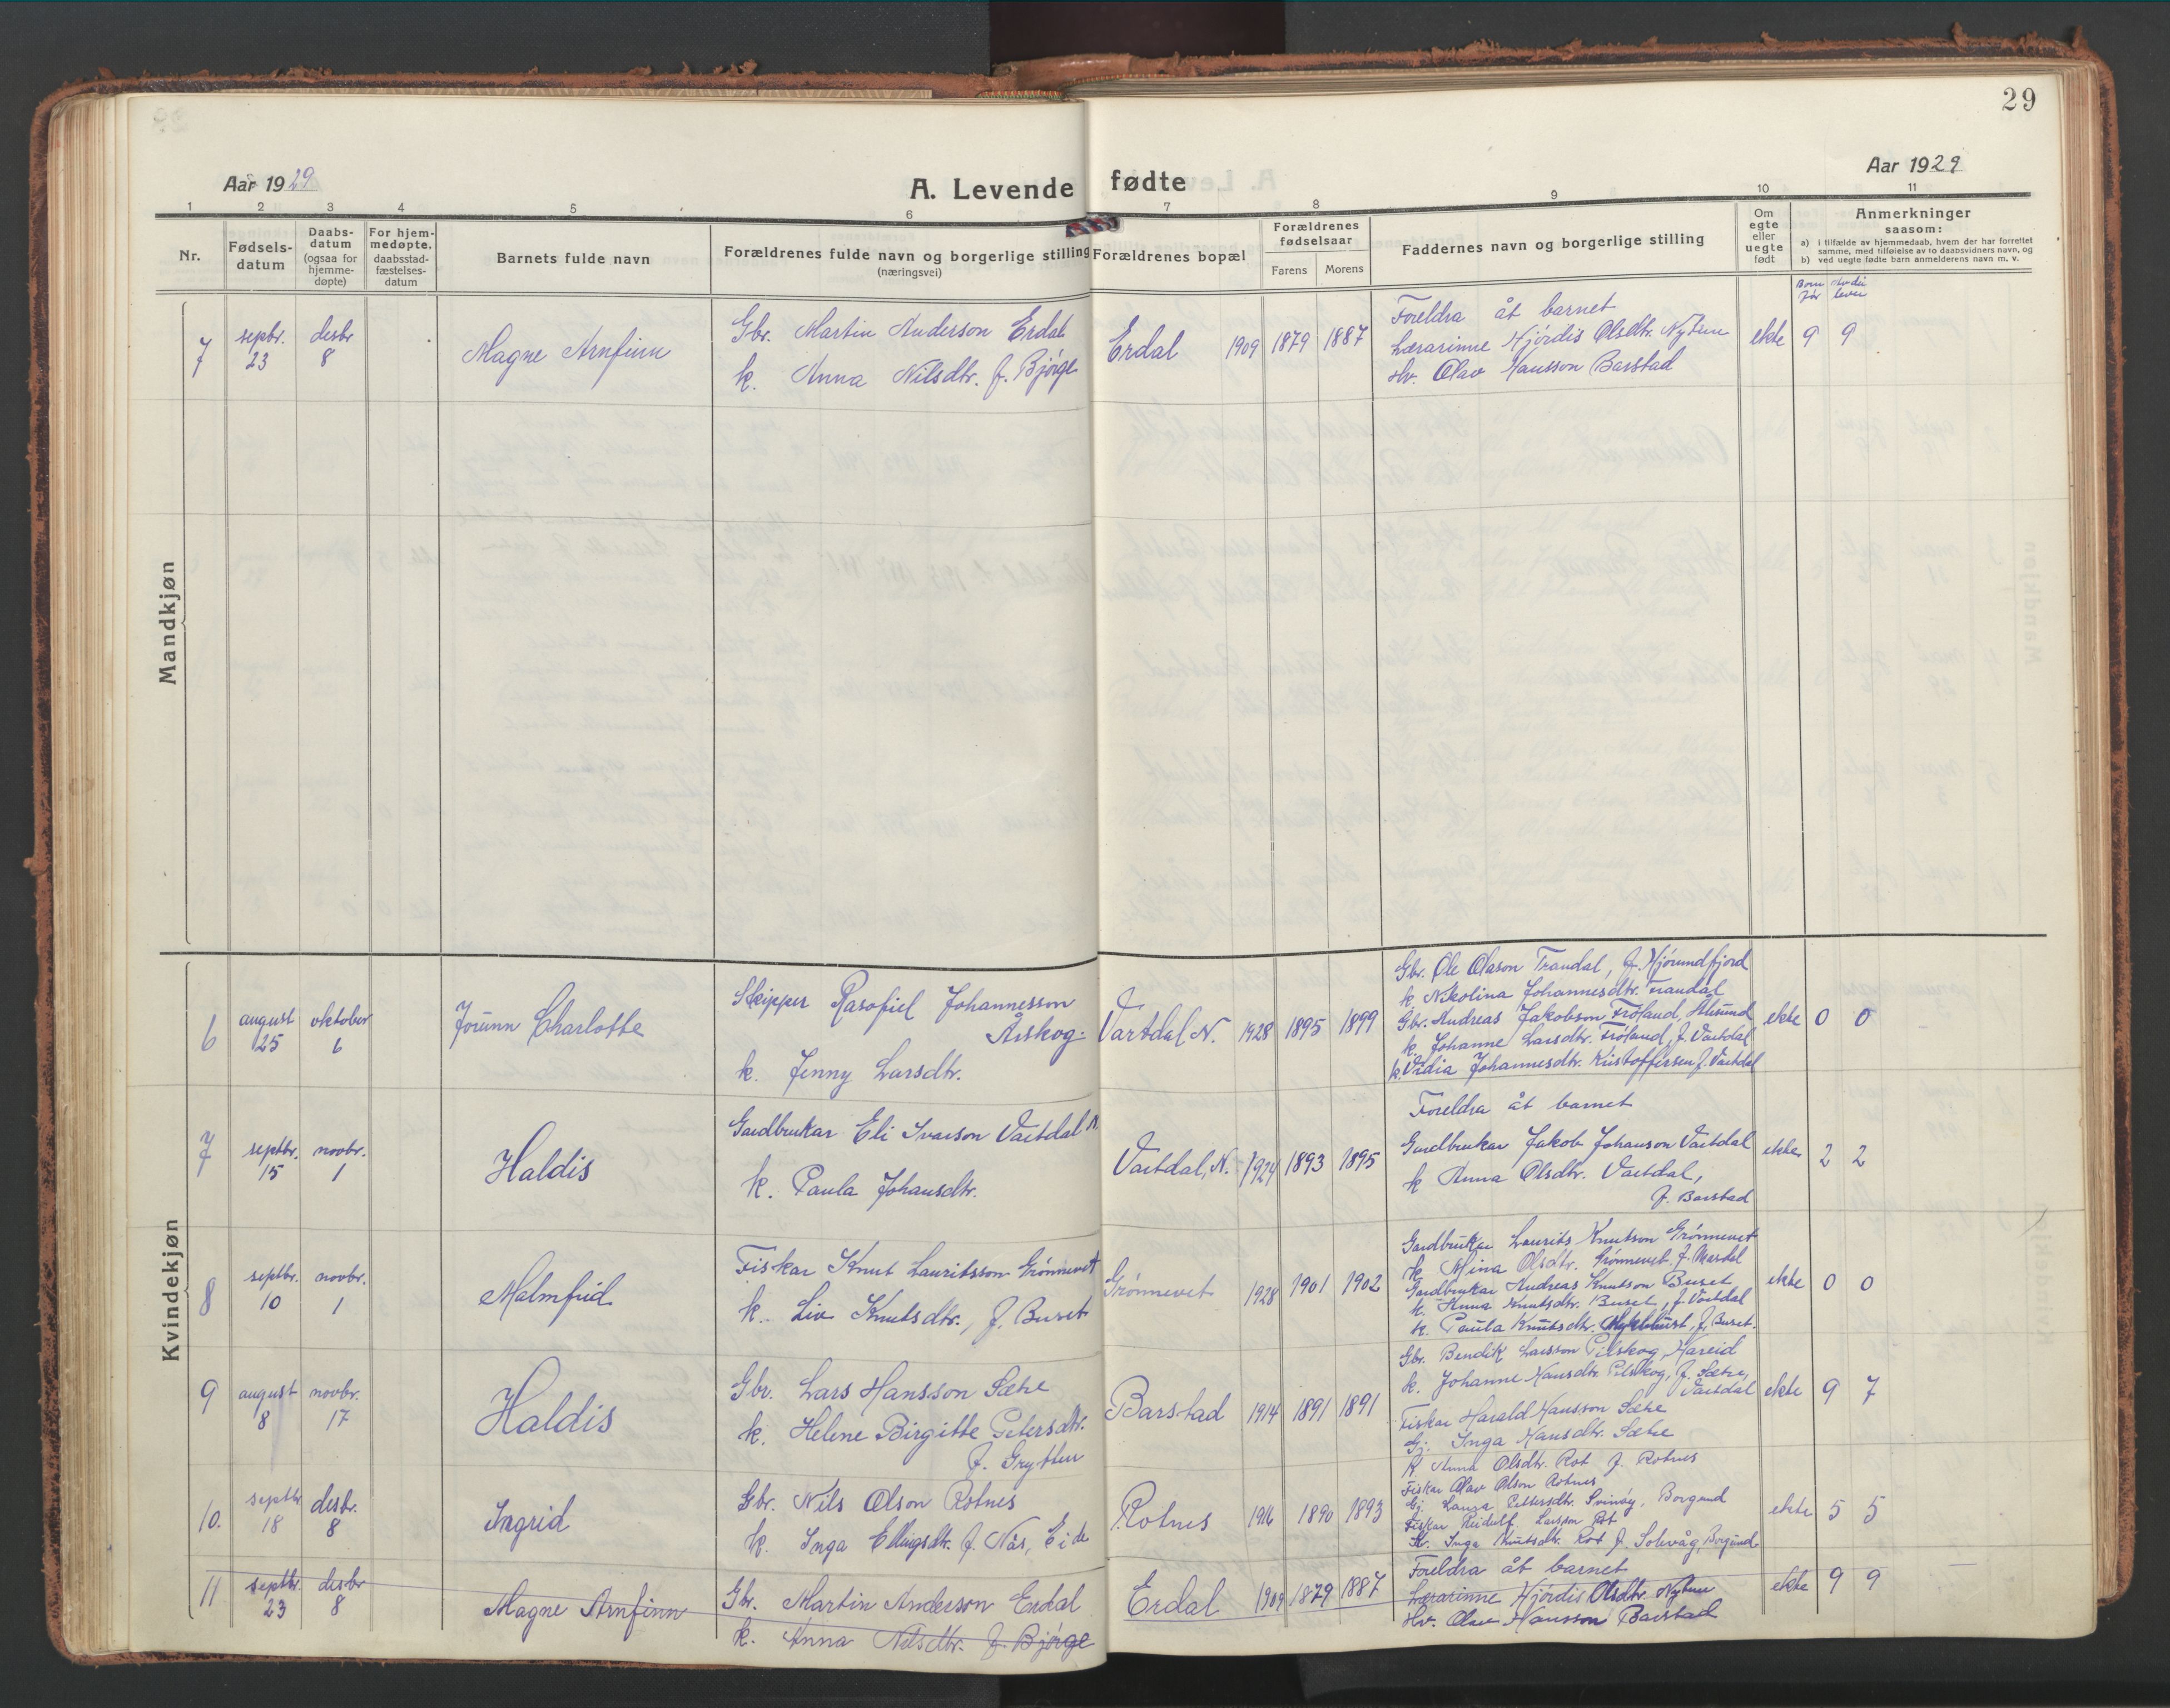 29
Aar 1929
A. Levende fødte
Aar 1929
1 2 3 4 5 6 7 8 9 10 11
Nr.
Fødsels-
datum
Daabs-
datum
(ogsaa for
hjemme-
døpte)
For hjem-
medøpte,
daabsstad-
fæstelses-
datum
Barnets fulde navn
Forældrenes fulde navn og borgerlige stilling
(næringsvei)
Forældrenes bopæl
Forældrenes
fødselsaar
Farens
Morens
Faddernes navn og borgerlige stilling
Om
egte
eller
uegte
født
Anmerkninger
saasom:
a) i tilfælde av hjemmedaab, hvem der har forrettet
samme, med tilføielse av to daabsvidners navn, og
b) ved uegte fødte barn anmelderens navn m. v.
Born
før
lever
Mandkjøn
7
septbr.
23
desbr
8
Magne Arnfinn
Gbr. Martin Anderson Erdal
k. Anna Nilsdtr. f. Bjørge
Erdal
1909
1879
1887
Foreldra åt barnet
Lærarinne Hjørdis Olsdtr. Nytun
Hv. Olav Hansson Barstad
ekte
9 9
Kvindekjøn
6
august
25
oktober
6
Jorunn Charlotte
Skipper Rasofiel Johannesson
Årskog.
k. Jenny Larsdtr.
Vartdal N.
1928
1895
1899
Gbr. Ole Olason Trandal, f. Hjørundfjord
k. Nikolina Johannesdtr. Trandal
Gbr. Andreas Jakobson Frøland, Ålesund
k. Johanne Larsdtr. Frøland, f. Vartdal
k. Vidia Johannesdtr. Kristoffersen f. Vartdal
ekte
0 0
7
septbr.
15
novbr.
1
Haldis
Gardbrukar Eli Ivarson Vartdal N.
k. Paula Johansdtr.
Vartdal, N.
1924
1893
1895
Foreldra åt barnet
Gardbrukar Jakob Johanson Vartdal
k Anna Olsdtr. Vartdal,
f. Barstad
ekte
2 2
8
septbr.
10
novbr.
1
Malmfrid
Fiskar Knut Lauritsson Grønnevet
k. Liv Knutsdtr., f. Buset
Grønnevet
1928
1901
1902
Gardbrukar Laurits Knutson Grønnevet
k. Mina Olsdtr. Grønnevet f.
Gardbrukar Andreas Knutson Buset
k. Anna Knutsdtr. Buset, f. Vartdal
k. Paula Knutsdtr. Myklebust, f. Buset.
ekte
0 0
9
august
8
novbr.
17
Haldis
Gbr. Lars Hansson Sætre
k. Helene Birgitte Petersdtr.
f. Grytten
Barstad
1914
1891
1891
Gbr. Bendik Larsson Pilskog, Hareid
k. Johanne Hansdtr. Pilskog, f. Sætre,
Vartdal
Fiskar Harald Hansson Sætre
Gj. Inga Hansdtr. Sætre
k. Anna Olsdtr. Rot f. Rotnes
ekte
9 7
10.
septbr
18
desbr.
8
Ingrid
Gbr. Nils Olson Rotnes
k. Inga Ellingsdtr. f. Nås, Eide
Rotnes
1916
1890
1893
Fiskar Olav Olson Rotnes
Gj. Laura Pettersdtr. Svinøy, Borgund
Fiskar Reidulf Larsson Rot
Kv. Inga Knutsdtr. Rot f. Solevåg, Borgund
ekte
5 5
11
septbr.
23
desbr
8
Magne Arnfinn
Gbr. Martin Anderson Erdal
k. Anna Nilsdtr. f. Bjørge
Erdal
1909
1879
1887
Foreldra åt barnet
Lærarinne Hjørdis Olsdtr. Nytun
Hv. Olav Hansson Barstad
ekte
9 9